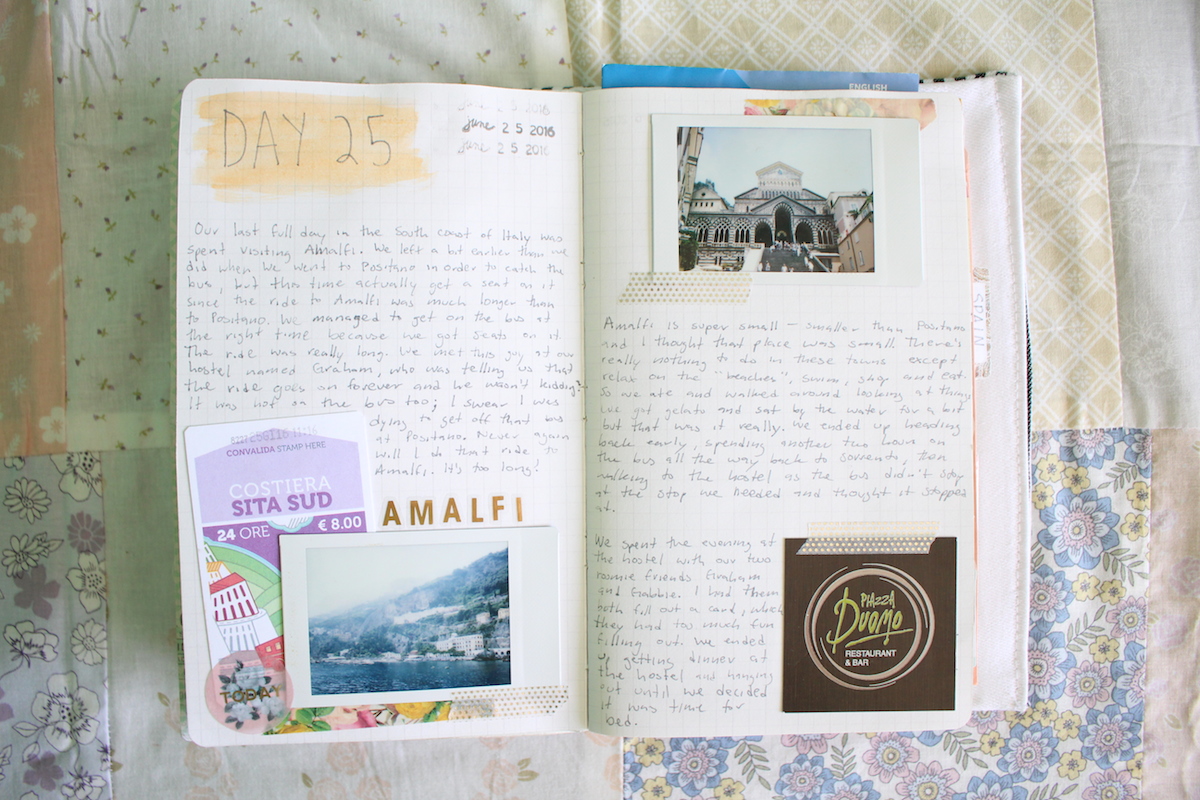 DAY 25
June 25 2016
June 25 2016
June 25 2016
Our last full day in the South coast of Italy was
spent visiting Amalfi. We left a bit earlier than we
did when we went to Positano in order to catch the
bus, but this time actually get a seat on it
since the ride to Amalfi was much longer than
to Positano. We managed to get on the bus at
the right time because we got seats on it.
The ride was really long. We met this guy at our
hostel named Graham, who was telling us that
the ride goes on forever and he wasn't kidding!
It was hot on the bus too; I swear I was
dying to get off that bus
at Positano. Never again
will I do that ride to
Amalfi. It's too long!
CONVALIDA STAMP HERE
COSTIERA
SITA SUD
24 ORE € 8.00
AMALFI
TODAY
ENGLISH
SPAIN
Amalfi is super small - smaller than Positano
and I thought that place was small. There's
really nothing to do in these towns except
relax on the "beaches", swim, shop and eat.
So we ate and walked around looking at things
we got gelato and sat by the water for a bit
but that was it really. We ended up heading
back early, spending another two hours on
the bus all the way back to Sorrento, then
walking to the hostel as the bus didn't stop
at the stop we needed and thought it stopped
at.
We spent the evening at
the hostel with our two
roomie friends Graham
and Gabbie. I had them
both fill out a card, which
they had too much fun
filling out. We ended
up getting dinner at
the hostel and hanging
out until we decided
it was time for
bed.
PIAZZA
DUOMO
RESTAURANT
& BAR